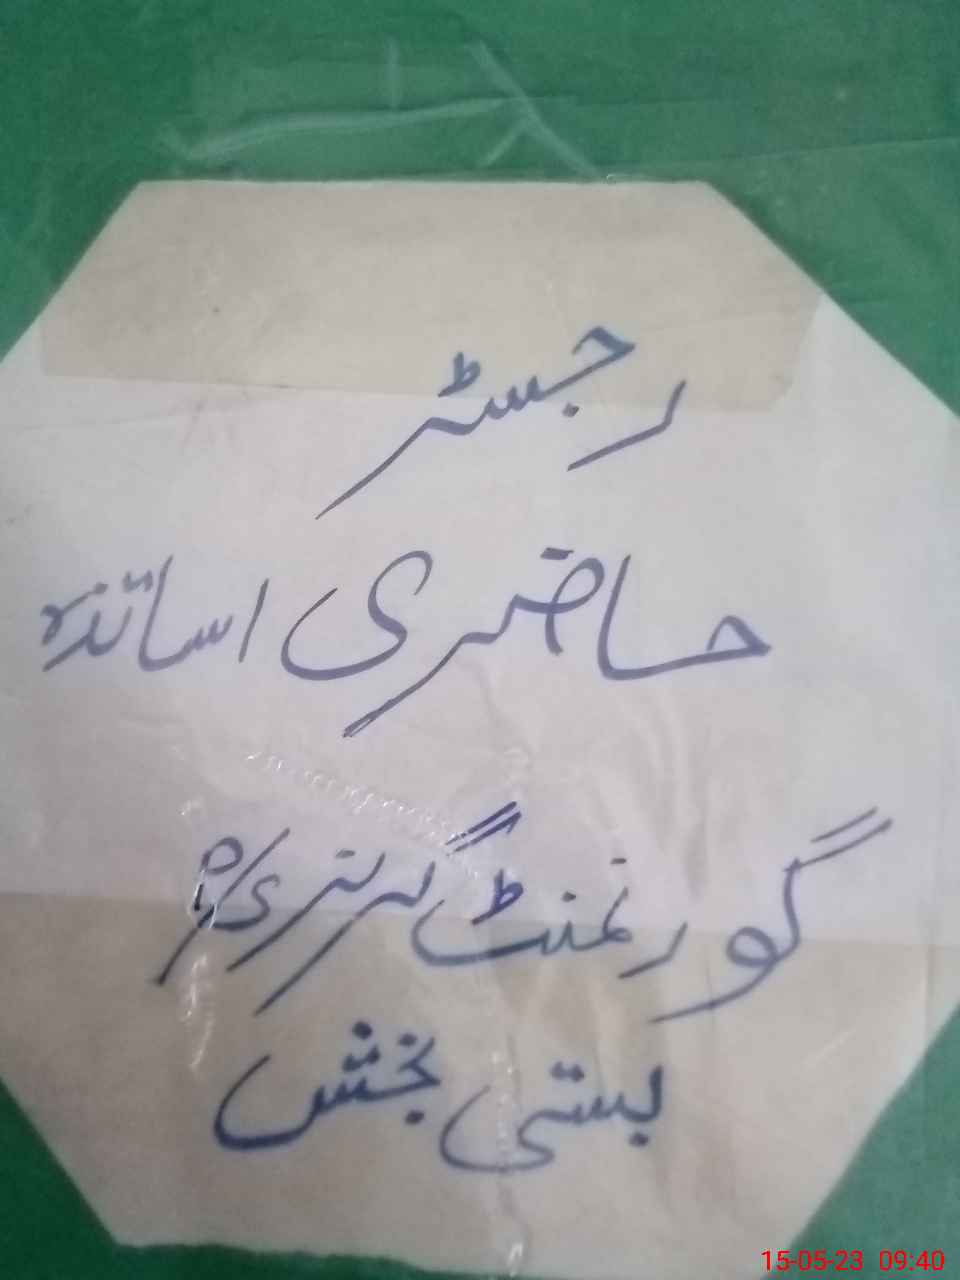 رجسٹر
حاضری اساتذہ
گورنمنٹ گرلز
بستی بخش
15-05-23 09:40